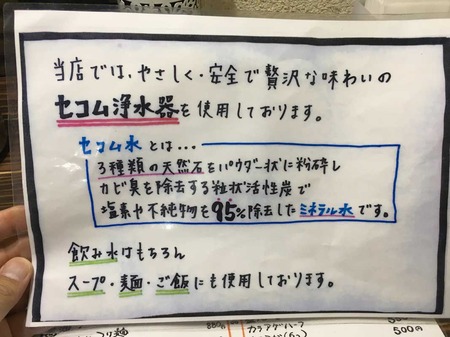 当店では、やさしく・安全で贅沢な味わいの
セコム浄水器を使用しております。
セコム水とは...
3種類の天然石をパウダー状に粉砕し
カビ臭を除去する粒状活性炭で
塩素や不純物を95%除去したミネラル水です。
飲み水はもちろん
スープ・麺・ご飯にも使用しております。
500円